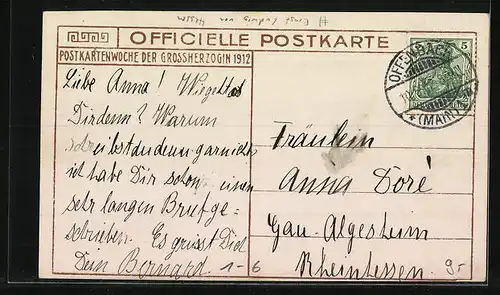 Ernst Ludwig von Hessen
OFFICIELLE POSTKARTE
POSTKARTENWOCHE DER GROSSHERZOGIN 1912
Liebe Anna! Wie geht es
Dir denn? Warum
schreibst du denn gar nicht
ich habe Dir schon einen
sehr langen Brief ge-
schrieben. Es grüsst Dich
Dein Bernard.
1-6
Fräulein
Anna Doré
Gau-Algesheim
Rheinhessen
9-
OFFENBACH
* (MAIN)
5